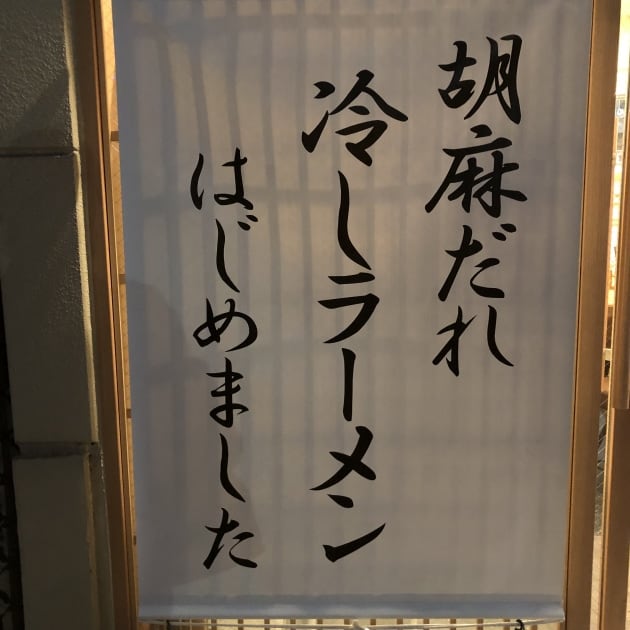 胡麻だれ
冷しラーメン
はじめました